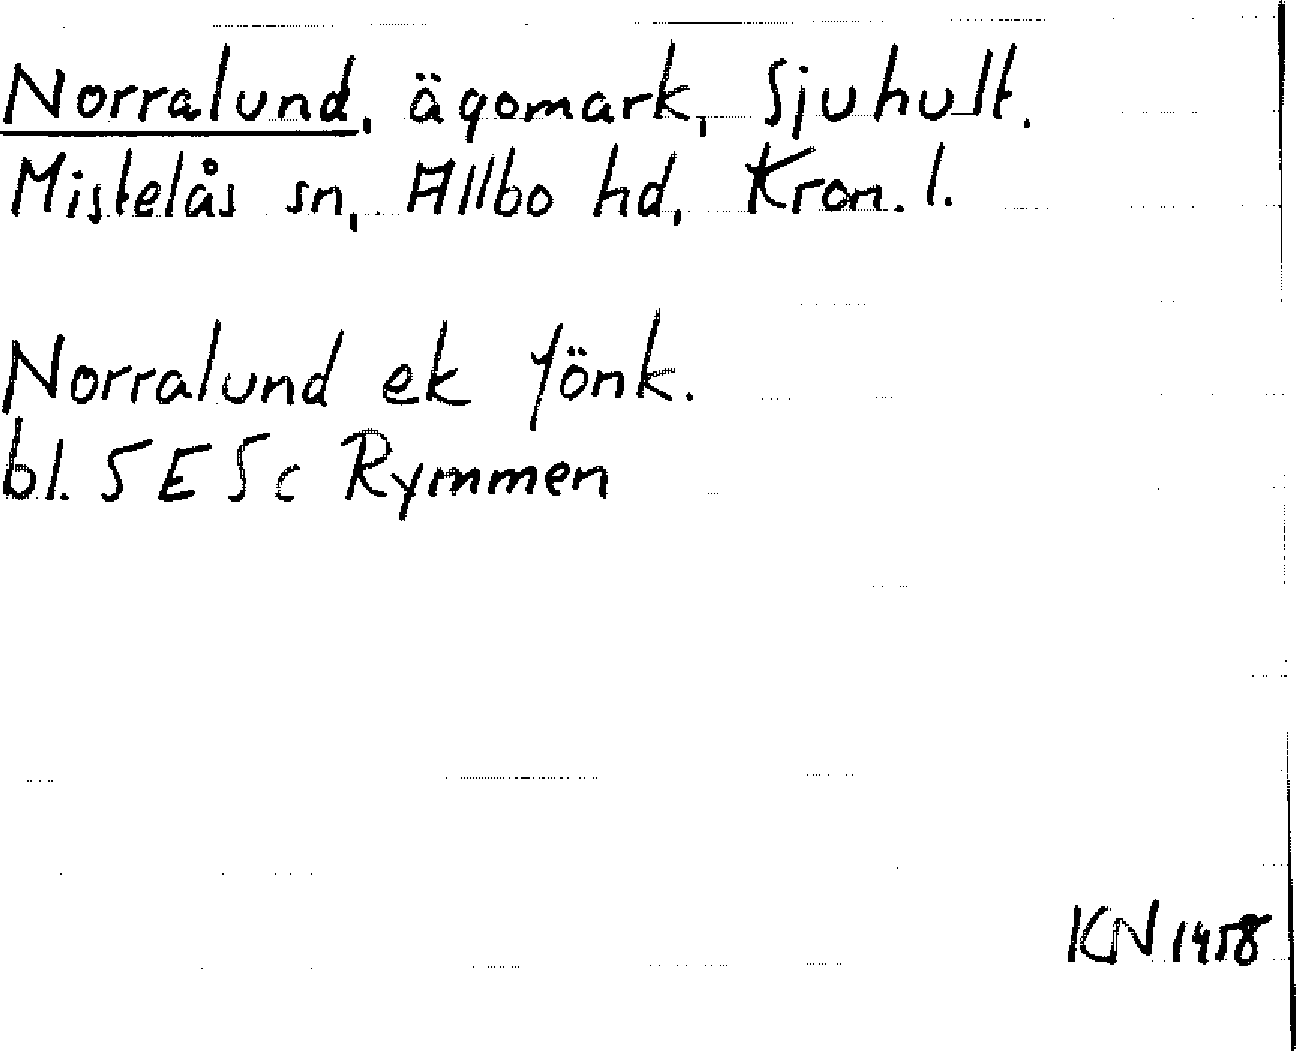 Norralund, ägomark, Sjuhult.
Mistelås sn, Allbo hd, Kron. l.
Norralund ek Jönk.
bl. 5 E 5c Rymmen
KN 1958